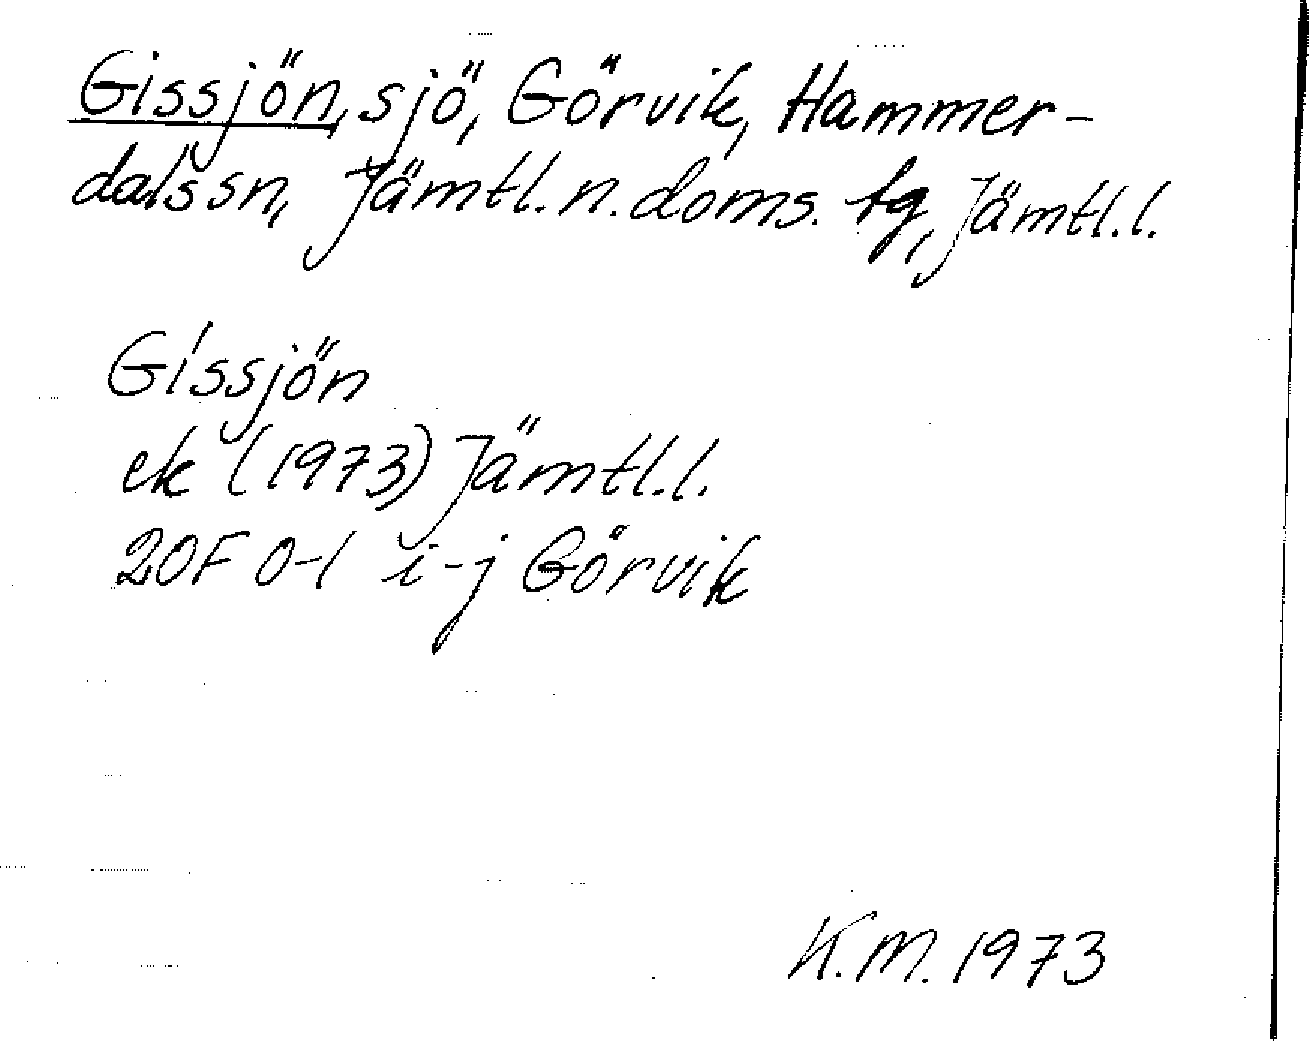 Gissjön, sjö, Görvik, Hammer-
dals sn, Jämtl. n. doms. tg, Jämtl. l.
Gissjön
ek (1973) Jämtl. l.
20F 0-1 i-j Görvik
K.M. 1973